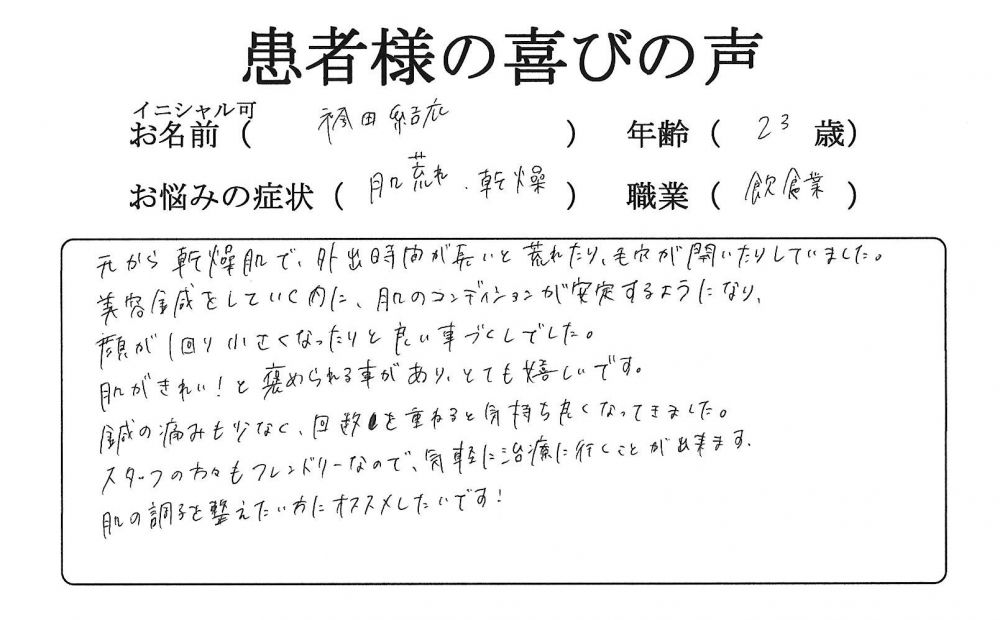 患者様の喜びの声
イニシャル可
お名前（ 袴田結衣 ） 年齢（ 23 歳）
お悩みの症状（ 肌荒れ、乾燥 ） 職業（ 飲食業 ）
元から乾燥肌で、外出時間が長いと荒れたり、毛穴が開いたりしていました。
美容鍼をしていく内に、肌のコンディションが安定するようになり、
顔が1回り小さくなったりと良い事づくしでした。
肌がきれい！と褒められる事があり、とても嬉しいです。
鍼の痛みも少なく、回数を重ねると気持ち良くなってきました。
スタッフの方々もフレンドリーなので、気軽に治療に行くことが出来ます。
肌の調子を整えたい方にオススメしたいです！